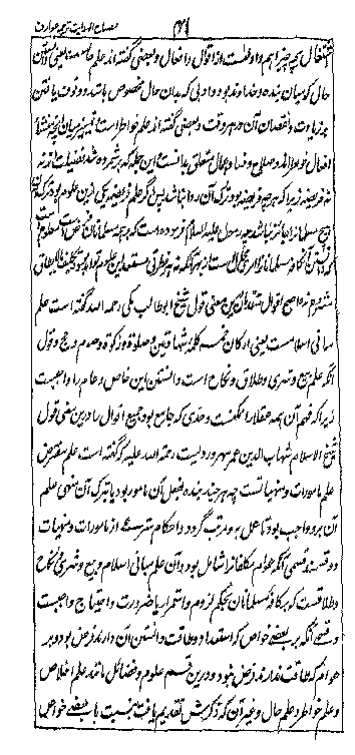 مصباح الهدایت ترجمه عوارف
اشتغال بچه چیز اهم و اوقست از اقوال و افعال و بعضی گفته‌اند علم حالست یعنی دانستن
حالی که میان بنده و خداوند بود و ادبی که بدان حال مخصوص باشد و وقوف یافتن
بر زیادت و نقصان آن در هر وقت و بعضی گفته‌اند علم خواطر است و تمییز میان آنچه منشأ
افعال خواطراند و صلاح و فساد اعمال متعلق بدانست این جمله که بر شمرده شد فضیلت اند نه
نه فریضه زیرا که هر چه فریضه بود ترک آن روا نباشد پس اگر علم فریضه یکی ازین علوم بودی ترک آن
هیچ مسلمانرا جائز نباشد چه رسول علیه السلام فرموده است که بر همه مسلمانان فرض است و معلومست
که دانستن کافه مسلمانان را این جمله ممکن نیست از بهر آنکه نه هر فطرتی مستعد این علوم تواند بود و تکلیف مالایطاق
مشروع نه و اصح اقوال متقدمان درین معنی قول شیخ ابوطالب مکی رحمه الله گفته است علم
مبانی اسلامست یعنی ارکان خمسه کلمه شهادتین و صلوة و زکوة و صوم و حج و قول
آنکه علم بیع و شری و طلاق و نکاح است و دانستن این خاص و عام را واجبست
زیرا که فهم آن همه عقلا را ممکنست و حدی که جامع بود جمیع اقوال را درین معنی قول
شیخ الاسلام شهاب الدین عمر سهروردیست رحمة الله علیه که گفته است علم مفترض
علم مامورات و منهیاتست چه هر چند بنده بفعل آن مامور بود یا بترک آن منهی علم
آن برو واجب بود تا عمل برو مرتب گردد و احکام شرعی از مامورات و منهیات
دو قسمند قسمی آنکه عوام مکلفانرا شامل بود و آن علم مبانی اسلام و بیع و شری و نکاح
و طلاقست که بر کافه مسلمانان بحکم لزوم و استمرار یا ضرورت و احتیاج واجبست
و قسمی آنکه بر بعضی خواص که استعداد و طاقت دانستن آن دارند فرض بود و بر
عوام که طاقت ندارند فرض نبود و درین قسم علوم و فضائل مانند علم اخلاص
و علم خواطر و علم حال و غیر آن که ذکرش تقدیم یافت نسبت با بعضی خواص